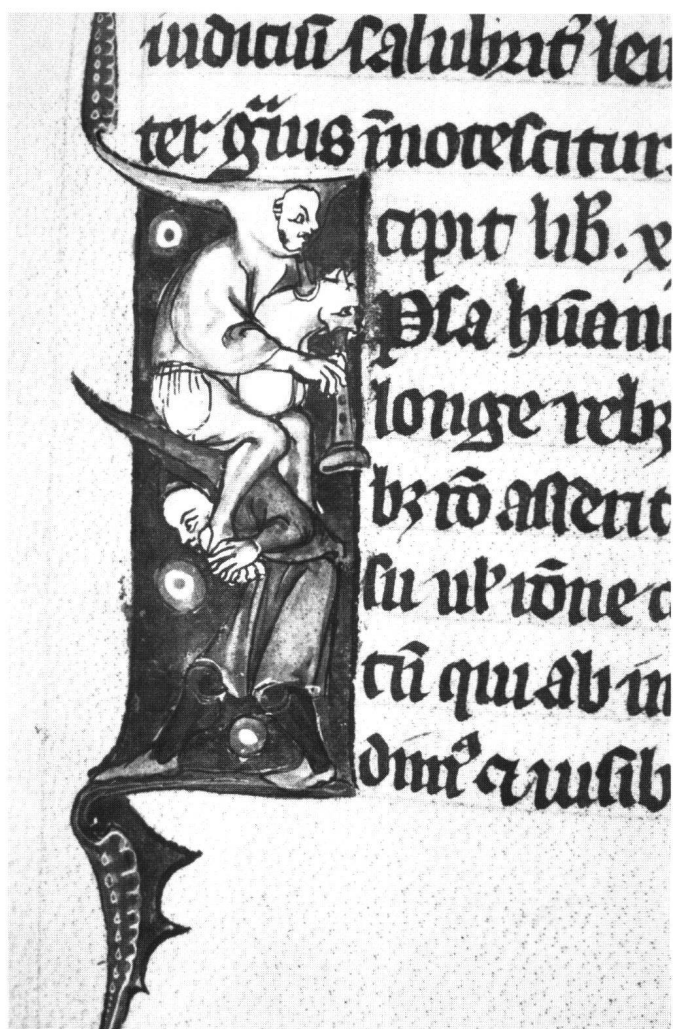 iudiciū salubrit̄ leu
ter gͥus īnotescitur.
cipit lib̄. x
Psa hūan
longe rebꝫ
bꝫ rō asserit
su ul̓ rōne c
tū qui ab in
⁊ uisib